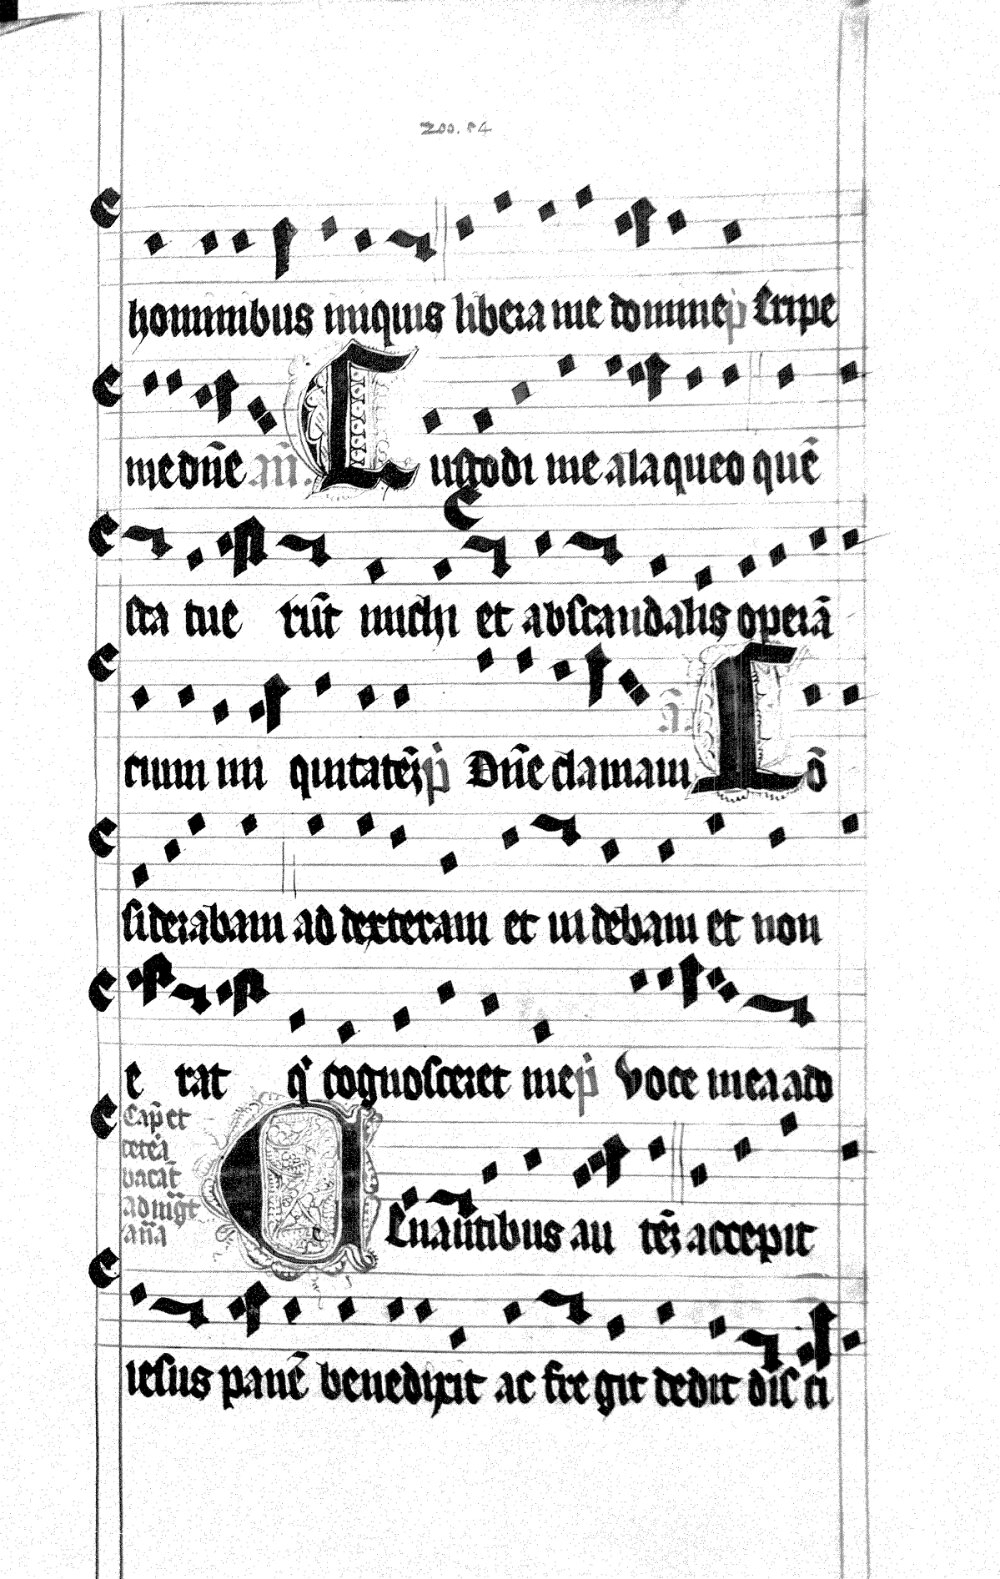 hominibus iniquis libera me domine p̄ Eripe
me dn̄e an̄.
Custodi me a laqueo quē
sta tue rūt michi et ab scandalis operā
cium ini quitatēʒ p̄ Dn̄e clamaui ā. Cō
siderabam ad dexteram et uidebam et non
e rat q' cognosceret me p̄ Voce mea ad d
Cap̄ et
cetēa
vacāt
ad mḡt
an̄a
Cenātibus au tēʒ accepit
iesus panē benedixit ac fre git dedit disci